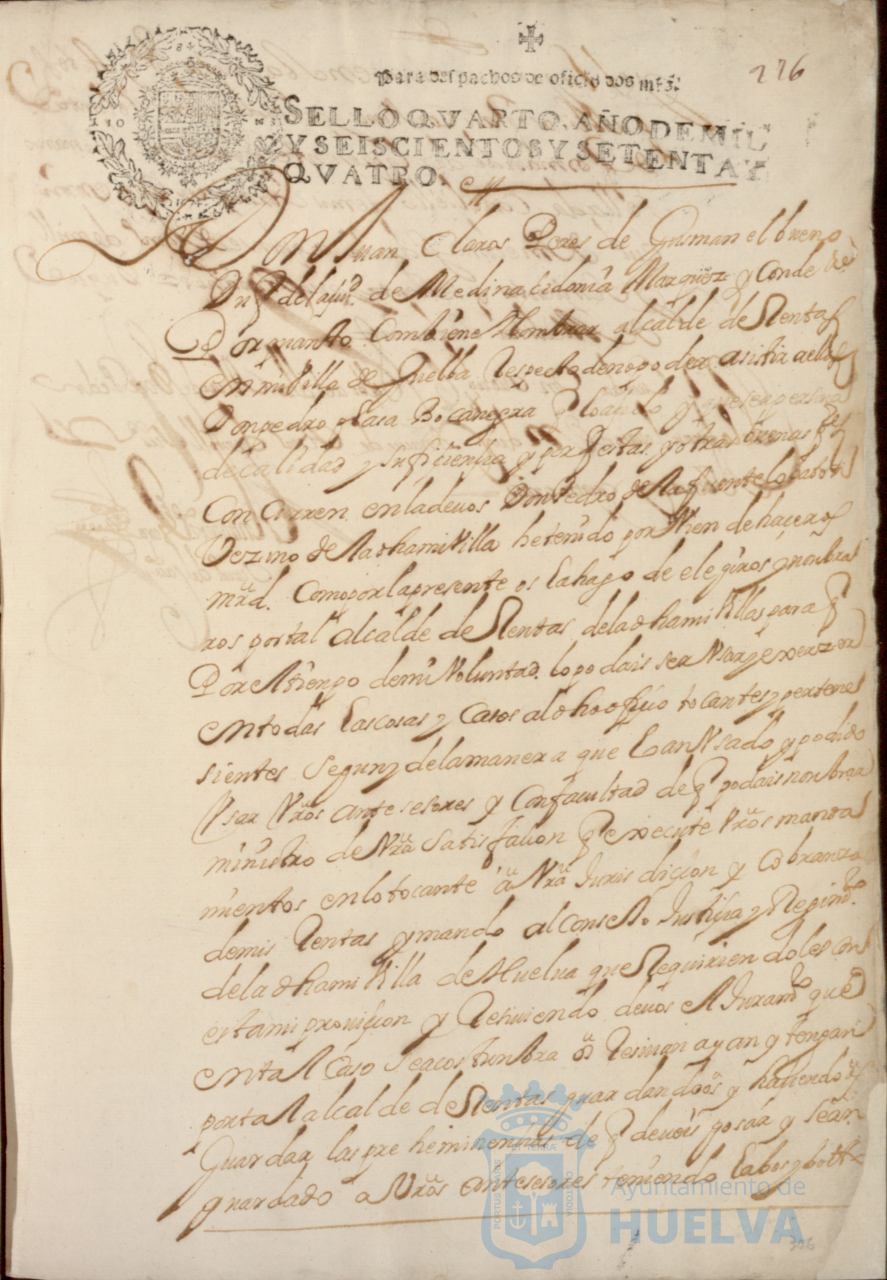 276
Para despachos de oficio dos mrs.
SELLO QVARTO, AÑO DE MIL
Y SEISCIENTOS Y SETENTA Y
QVATRO.
Don Juan Claros Peres de Gusman el bueno
Duq de la çiud. de Medina cidonia Marquez y Conde &c
Por quanto Combiene Nombrar alcalde de Rentas
en mi Villa de Guelba Respecto de no poder asistir a ellas
Don pedro Lasa Bocanegra y que se a persona
de calidad y suficientia y por q estas y otras buenas
Concurren en la de vos Don Pedro de la fuente
Vezino de la dha mi Villa he tenido por Vien de haçeros
mrd. Como por la presente os la hago de elegiros y nonbra
ros por tal Alcalde de Rentas de la dha mi Villa para q
Por el tienpo de mi Voluntad lo podais ser Vsar y exerzer
en todas las cosas y Casos al dho ofiçio tocantes y pertene
sientes segun y de la manera que lo an Vsado y podido
Vsar Vros antesesores y Con facultad de q podais nonbrar
ministro de Vra Satisfaçion q execute Vros manda
mientos en lo tocante a Vra Jurisdiçion y Cobranza
de mis Rentas y mando al Consejo Justiçia y Regimto.
de la dha mi Villa de Huelua que Requiriendoles con
esta mi prouiçion y Resiuiendo de vos el Juramto que
en tal Caso se acostunbra os Resiuan ayan y tengan
por tal alcalde de Rentas guardandoos y haciendo os
Guardar las pre heminencias de q deueis gosar y sean
guardado a Vros antesesores teniendo la bos y botto
PORTUS MARIS ET TERRAE CUSTODIA
Ayuntamiento de
HUELVA
306